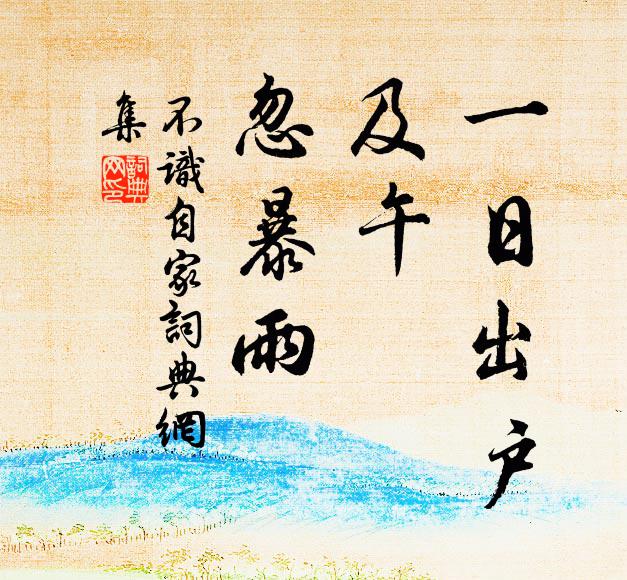 一日出户
及午
忽暴雨
不識自家詞典網
集
詞典
网印